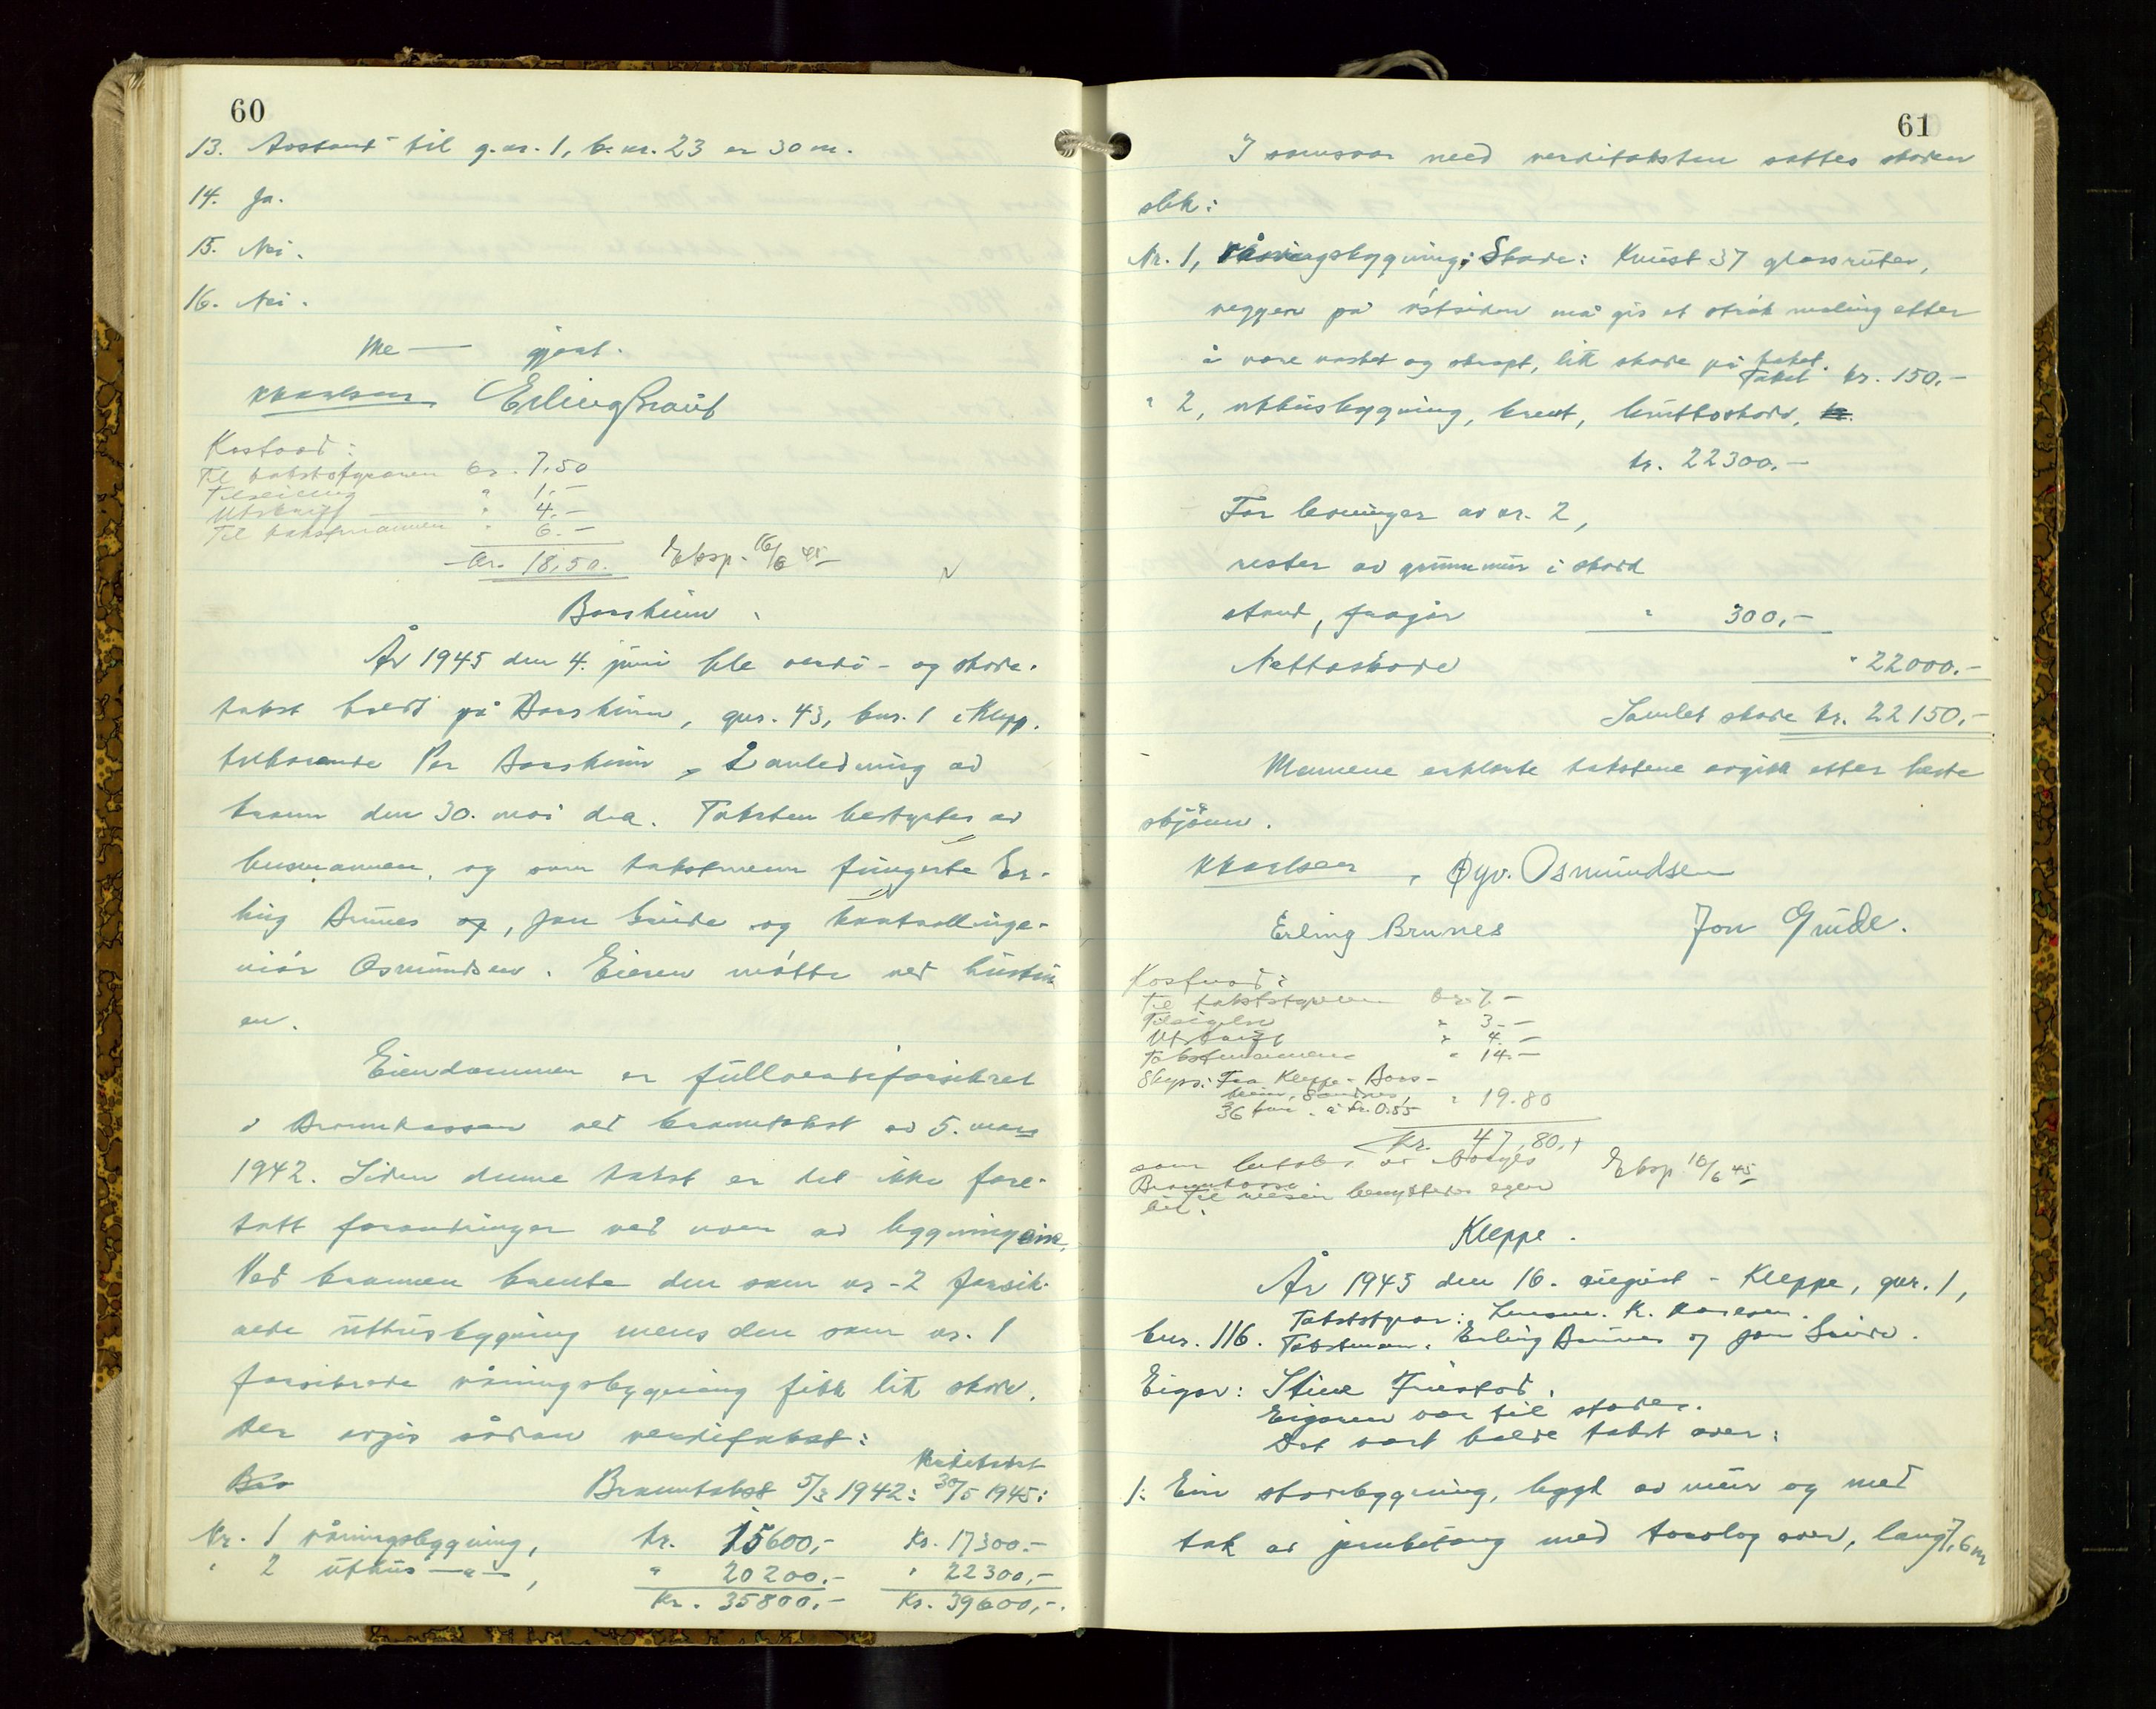 60
13. Avstand til g.nr. 1, b.nr. 23 er 30 m.
14. Ja.
15. Nei.
16. Nei.
Me — gjort.
KKarlsen Erling Braut
Kostnad:
Til takststyraren kr. 7,50
Tilseiing " 1,-
Utskrift " 4.-
Til takstmannen " 6.-
kr. 18,50. Eksp. 16/6 45
Borsheim.
År 1945 den 4. juni ble verdi- og skade-
takst holdt på Borsheim, gnr. 43, bnr. 1 i Klepp.
tilhørende Per Borsheim, i anledning av
brann den 30. mai d.a. Taksten bestyrtes av
lensmannen, og som takstmenn fungerte Er-
ling Brunes og, Jon Gude og kontrollinge-
niør Osmundsen. Eieren møtte ved hustru-
en.
Eiendommen er fullverdiforsikret
i Brannkassen ved branntakst av 5. mars
1942. Siden denne takst er det ikke fore-
tatt forandringer ved noen av bygningene.
Ved brannen brente den som nr. 2 forsik-
rede uthusbygning mens den som nr. 1
forsikrede våningsbygning fikk litt skade.
Der avgis sådan verditakst:
Verditakst
Bra Branntakst 5/3 1942: 30/5 1945:
Nr. 1 våningsbygning, kr. 15600,- Kr. 17300.-
" 2 uthus —"—, " 20200.- " 22300,-
Kr. 35800.- Kr. 39600,-.
61
I samsvar med verditaksten settes skaden
slik:
Nr. 1, våningsbygning: Skade: Knust 37 glassruter,
veggen på østsiden må gis et strøk maling etter
å være vasket og skrapt, litt skade på taket.
Takst kr. 150.-
" 2, uthusbygning, brent, bruttoskade, kr.
kr. 22300.-
For levninger av nr. 2,
rester av grunnmur i skadd
stand, fragår " 300,-
Nettoskade " 22000.-
Samlet skade kr. 22150,-
Mennene erklærte takstene avgitt etter beste
skjønn.
KKarlsen, Øyv. Osmundsen
Erling Brunes Jon Gude.
Kostnad:
Til takststyreren kr. 7.-
Tilsigelse " 3.-
Utskrift " 4.-
Takstmennene " 14.-
Skyss: Fra Kleppe - Bors-
heim, Sandnes,
36 km. à kr. 0.55 " 19.80
Kr. 47,80.+
som betales av Norges
Brannkasse. Eksp. 10/6 45
Til reisen benyttedes egen
bil.
Kleppe.
År 1945 den 16. august - Kleppe, gnr. 1,
Takststyrar: Lensm. K. Karlsen.
bnr. 116. Takstmenn: Erling Brunes og Jon Gude.
Eigar: Stine Friestad.
Eigaren var til stades.
Det vart halde takst over:
1: Ein stovebygning, bygt av mur og med
tak av jernbetong med torvlag over, lang 7,6 m